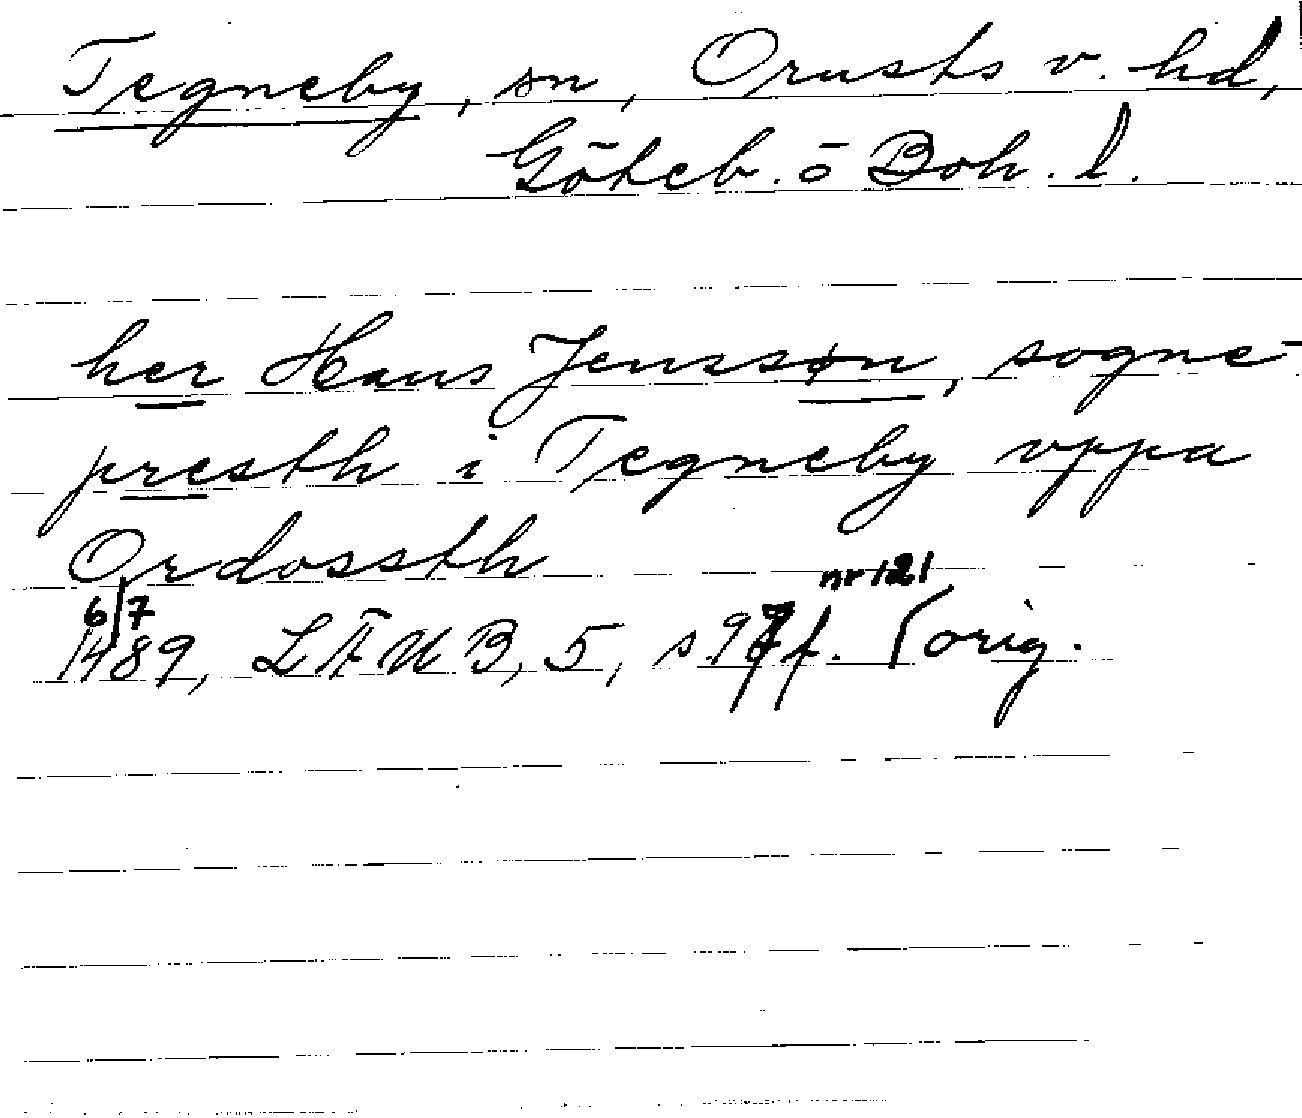 Tegneby, sn, Orusts v. hd,
Göteb. o Boh. l.
her Hans Jenssøn, sogne-
presth i Tegneby vppa
Ordossth
6/7 nr 121
1489, LÄUB, 5, s. 97 f. (orig.